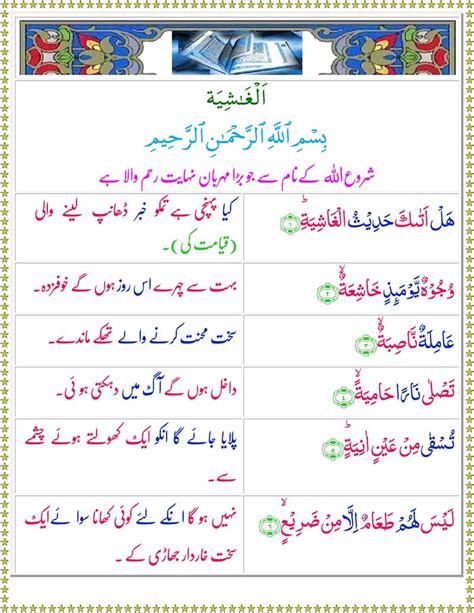 اَلْغَاشِيَة
بِسْمِ ٱللَّهِ ٱلرَّحْمَـٰنِ ٱلرَّحِيمِ
شروع اللہ کے نام سے جو بڑا مہربان نہایت رحم والا ہے
هَلْ اَتٰىكَ حَدِيْثُ الْغَاشِيَةِؕ ﴿١﴾
کیا پہنچی ہے تمکو خبر ڈھانپ لینے والی
(قیامت کی)۔
وُجُوْهٌ يَّوْمَىِٕذٍ خَاشِعَةٌۙ ﴿٢﴾
بہت سے چہرے اس روز ہوں گے خوفزدہ۔
عَامِلَةٌ نَّاصِبَةٌۙ ﴿٣﴾
سخت محنت کرنے والے تھکے ماندے۔
تَصْلٰى نَارًا حَامِيَةًۙ ﴿٤﴾
داخل ہوں گے آگ میں دہکتی ہوئی۔
تُسْقٰى مِنْ عَيْنٍ اٰنِيَةٍؕ ﴿٥﴾
پلایا جائے گا انکو ایک کھولتے ہوئے چشمے
سے۔
لَيْسَ لَهُمْ طَعَامٌ اِلَّا مِنْ ضَرِيْعٍۙ ﴿٦﴾
نہیں ہو گا انکے لئے کوئی کھانا سوائے ایک
سخت خاردار جھاڑی کے۔